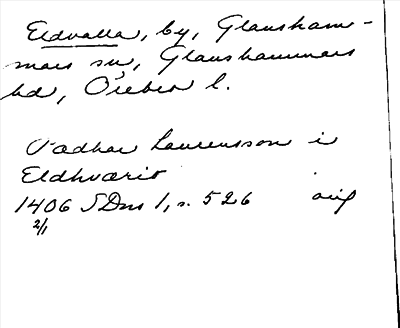 Eldvalla, by, Glansham-
mars sn, Glanshammars
hd, Örebro l.
Laurensson i
Eldhwærio
1406 SDns 1, s. 526 orig
2/1